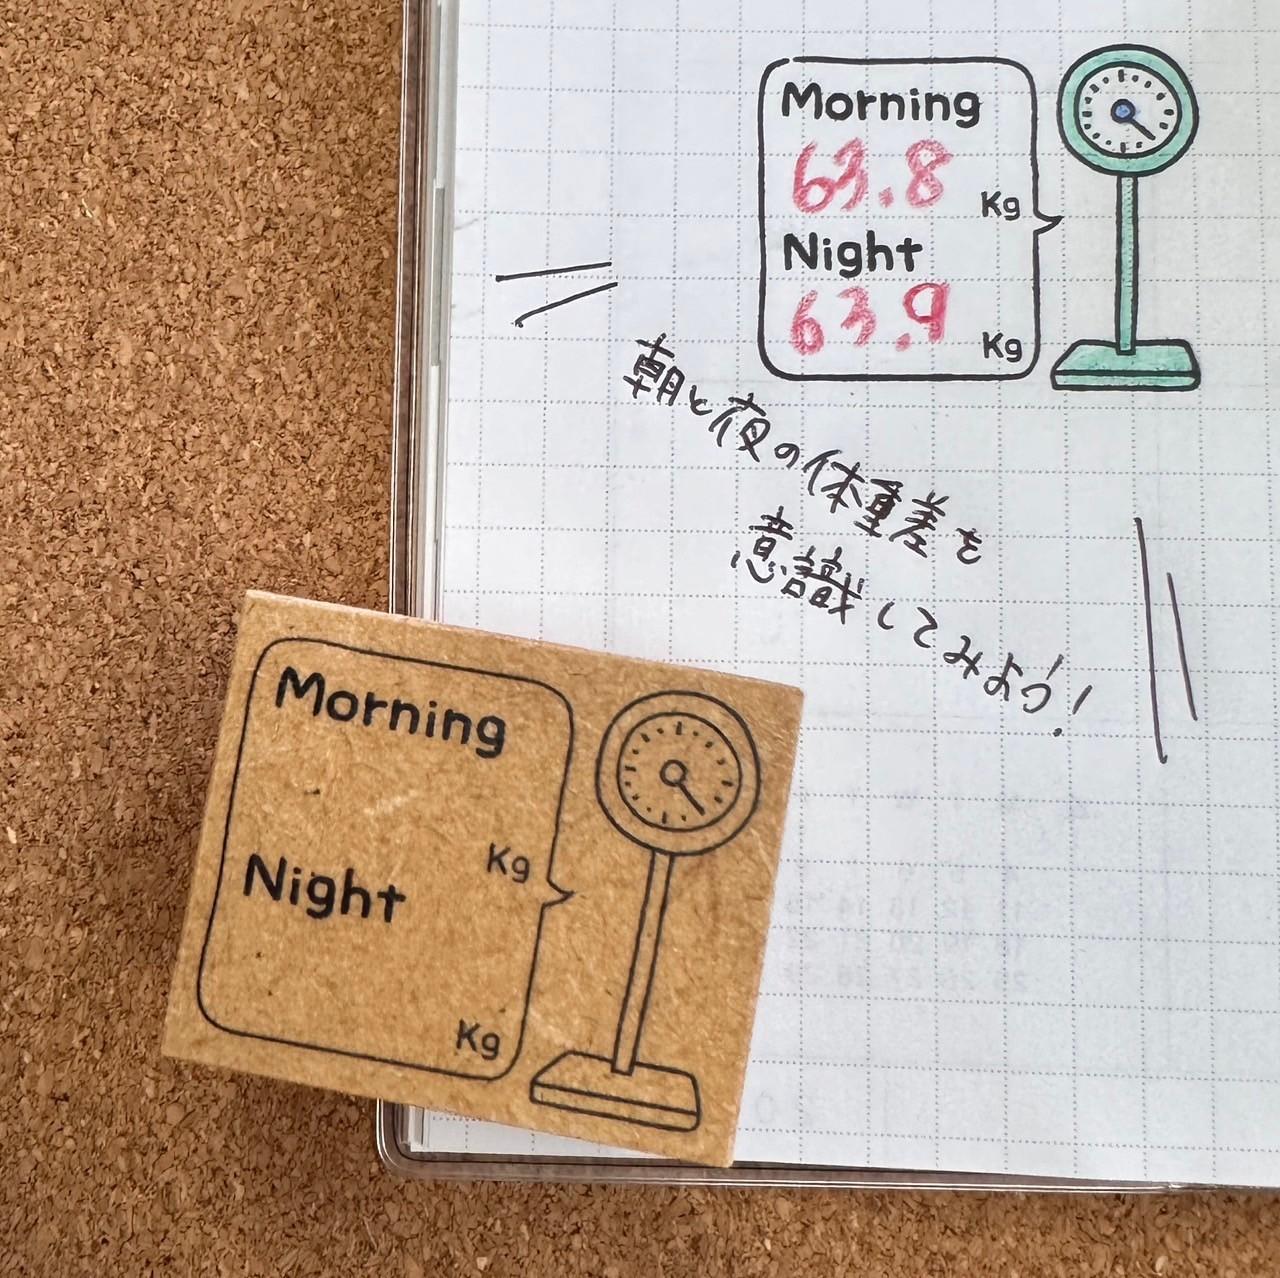 Morning
63.8 Kg
Night
63.9 Kg
朝と夜の体重差を
意識してみよう!
Morning
Kg
Night
Kg